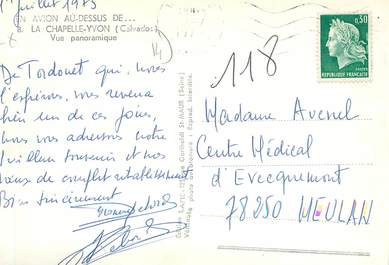 1er juillet 1973
EN AVION AU-DESSUS DE...
8. LA CHAPELLE-YVON (Calvados)
Vue panoramique
De Tordouet qui, nous
l'espérons, vous reverra
un de ces jours,
nous vous adressons notre
meilleur souvenir et nos
voeux de complet rétablissement.
Bien sincèrement
118
0,50
REPUBLIQUE FRANÇAISE
POSTES
Madame Avenel
Centre Médical
d'Evecquemont
78250 MEULAN